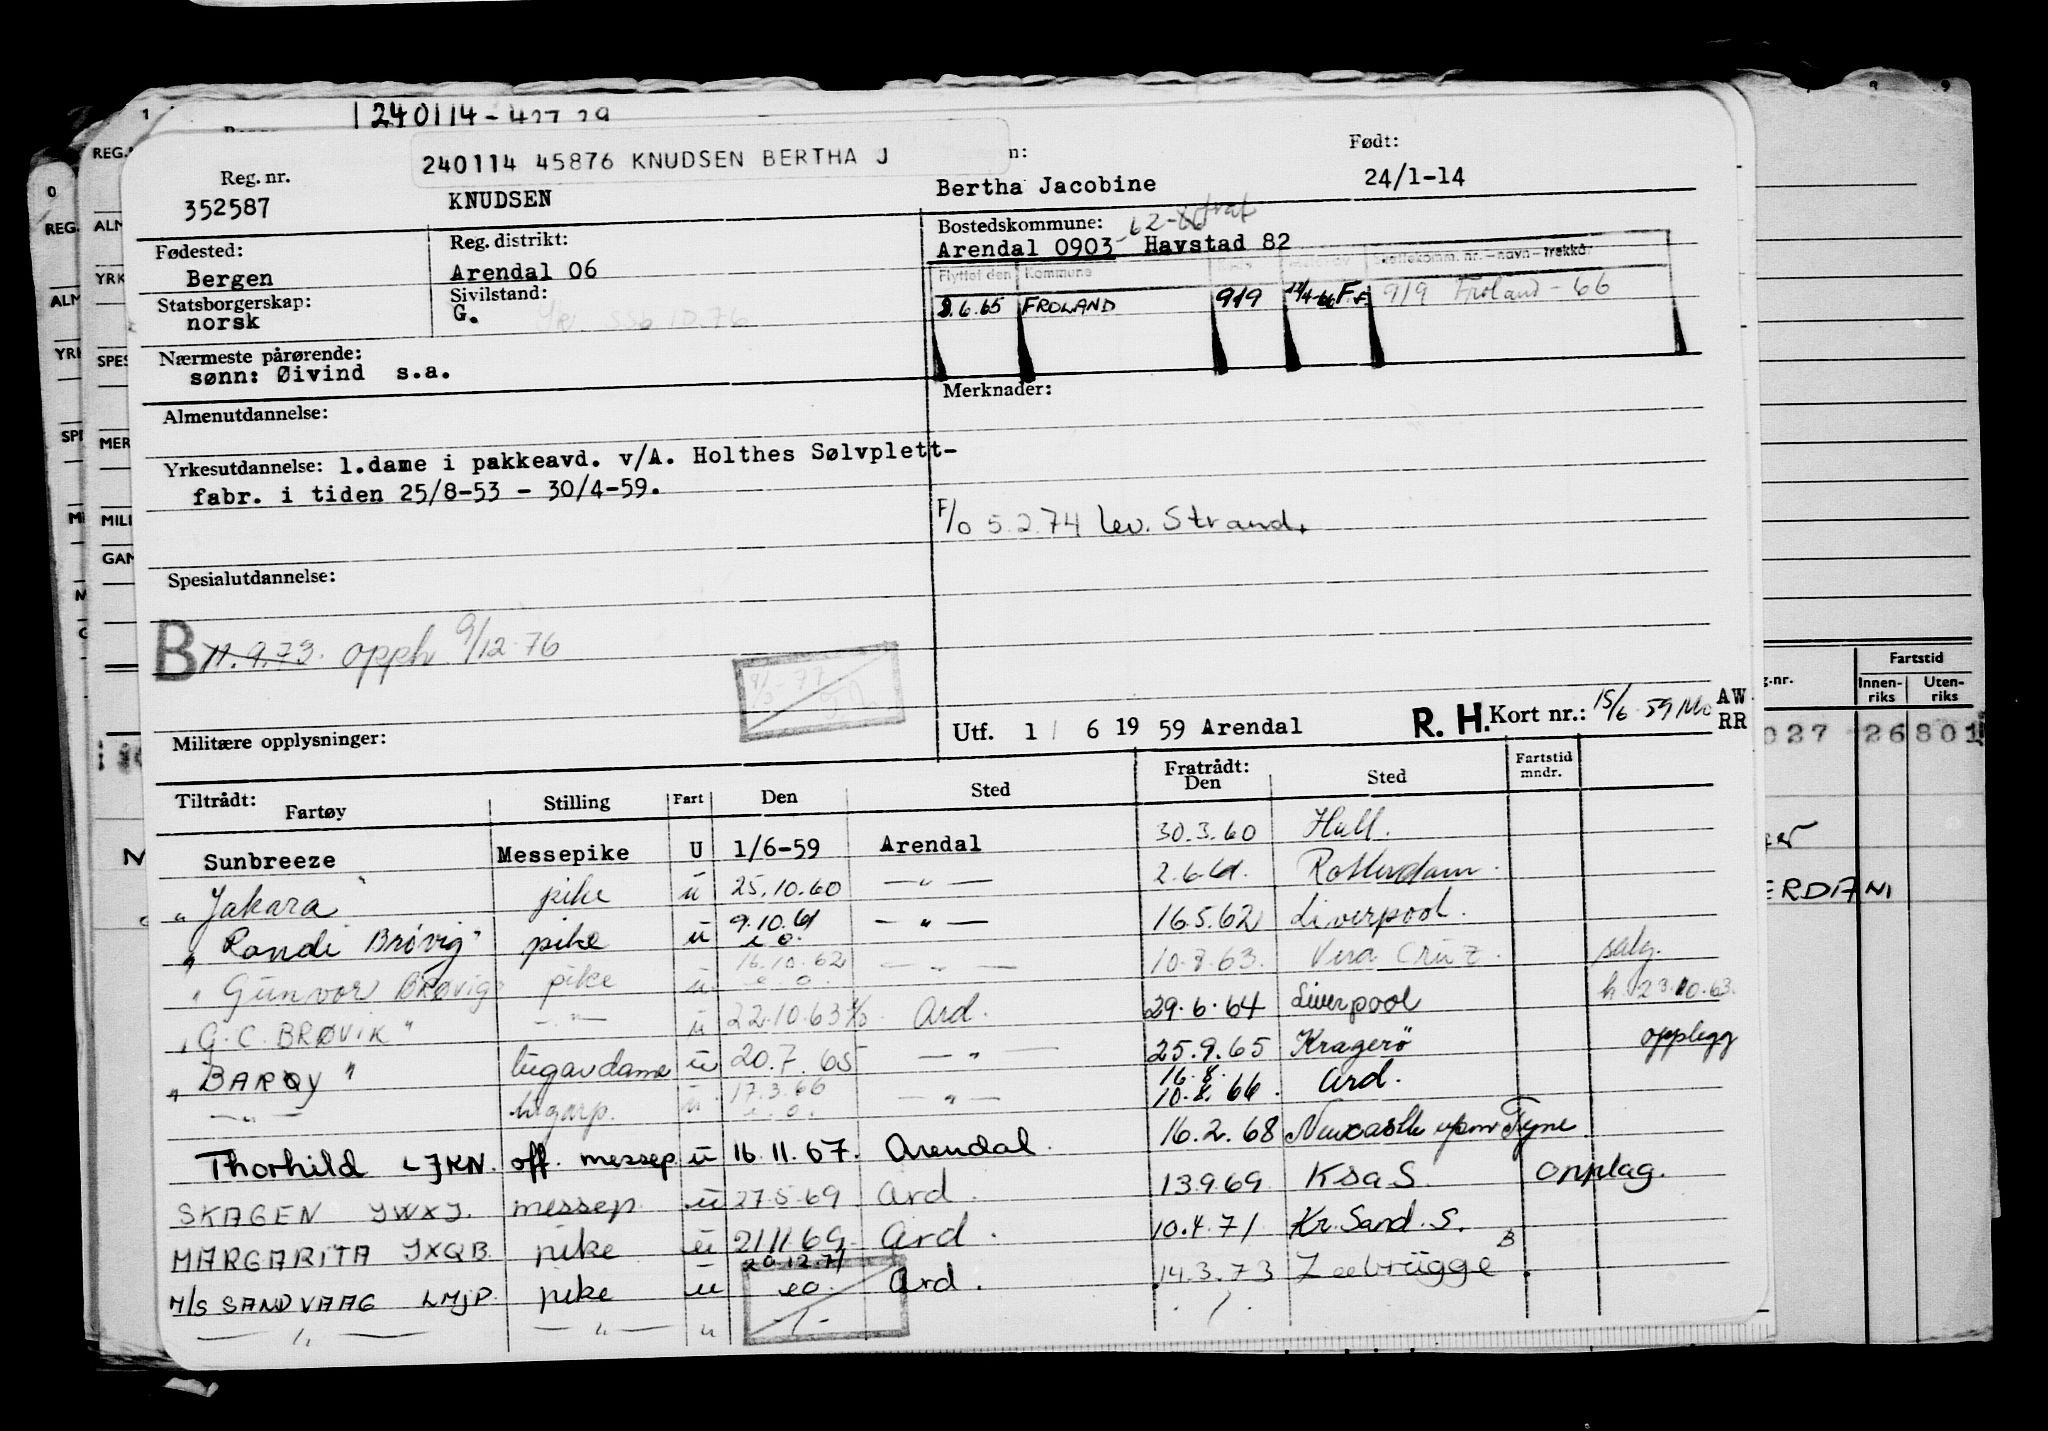 240114-427 29
240114 45876 KNUDSEN BERTHA J
Reg. nr.
352587
KNUDSEN
n:
Bertha Jacobine
Født:
24/1-14
Fødested:
Bergen
Reg. distrikt:
Arendal 06
Bostedskommune:
Arendal 0903 Havstad 82
Statsborgerskap:
norsk
Sivilstand:
G.
Flyttet den Kommune Skattekomm. nr.-navn-trekkår
8.6.65 FROLAND 919 919 Froland-66
Nærmeste pårørende:
sønn: Øivind s.a.
Almenutdannelse:
Merknader:
Yrkesutdannelse: 1.dame i pakkeavd. v/A. Holthes Sølvplett-
fabr. i tiden 25/8-53 - 30/4-59.
F/o 5.2.74 lev. Strand.
Spesialutdannelse:
B 11.9.73. opph 9/12-76
Militære opplysninger:
Utf. 1/ 6 19 59 Arendal
R. H. Kort nr.: 15/6-59
AW
RR
Tiltrådt: Fartøy Stilling Fart Den Sted Fratrådt: Den Sted Fartstid mndr.
Sunbreeze Messepike U 1/6-59 Arendal 30.3.60 Hull.
" Jakara pike u 25.10.60 — " — 2.6.61. Rotterdam.
" Randi Brøvig" pike u 9.10.61 e.o. — " — 16.5.62 Liverpool.
" Gunvor Brøvig pike u 16.10.62 e.o. — " — 10.8.63. Vera Cruz. salg.
" G.C. BRØVIK " — " — u 22.10.63 Ard. 29.6.64 Liverpool h 23.10.63.
" BARØY " lugardame u 20.7.65 — " — 25.9.65 Kragerø opplegg
— " — lugarp. u 17.3.66 e.o. — " — 16.8. 10.8.66. Ard.
Thorhild LJKN. off. messep. u 16.11.67. Arendal. 16.2.68 Newcastle upon Tyne
SKAGEN JWXJ. messep. u 27.5.69 Ard. 13.9.69 KsaS. opplag.
MARGARITA JXQB. pike u 21.11.69. Ard. 10.4.71. Kr.Sand.S.
M/S SANDVAAG LMJP. pike u 29.12.71 eo Ard. 14.3.73 Zeebrügge B
— " — — " — u
REG.
ALM
YRK
SPES
MER
MILI
GAN
Fartstid
g.-nr. Innen-riks Uten-riks
027 26 801
ERDANI